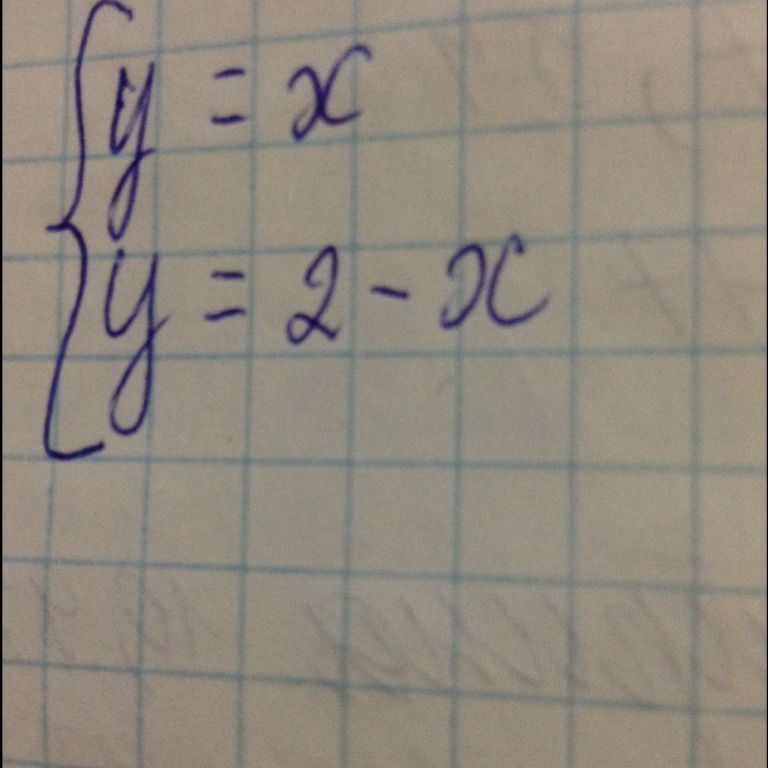 y = x
y = 2 - x